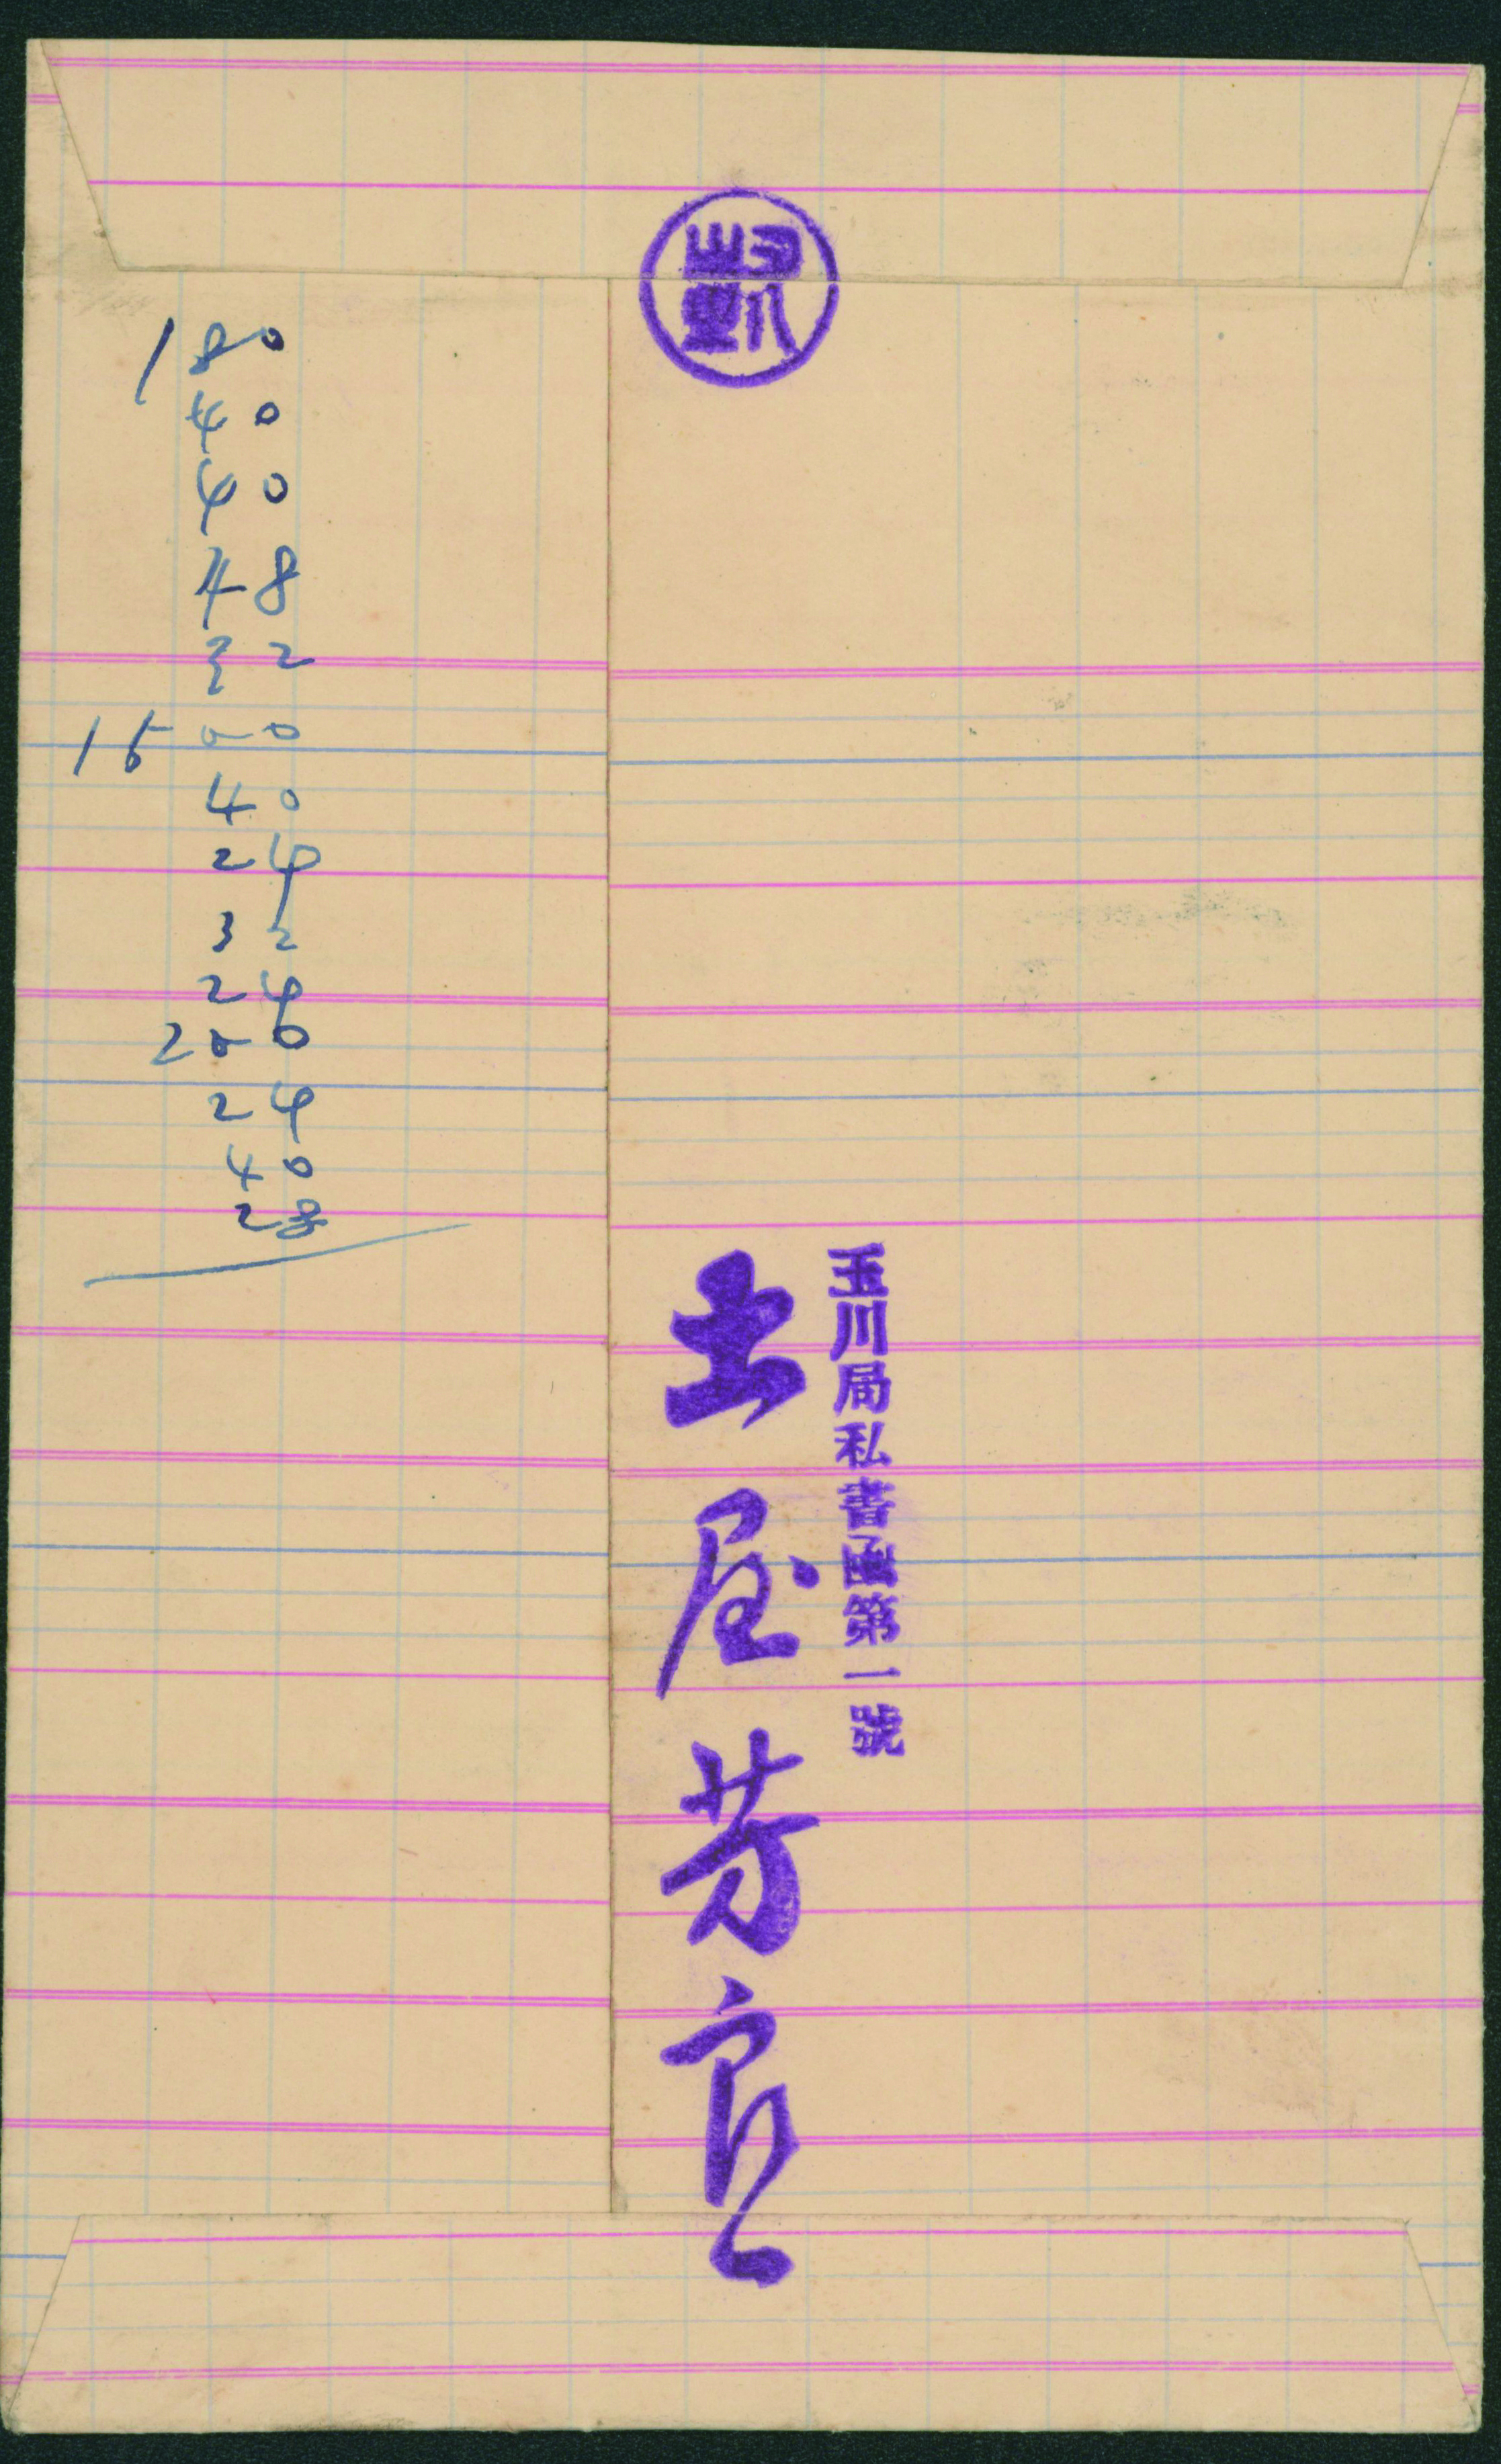 凱
180
40
40
48
32
1500
40
24
32
24
200
24
40
28
玉川局私書函第一號
土屋芳良